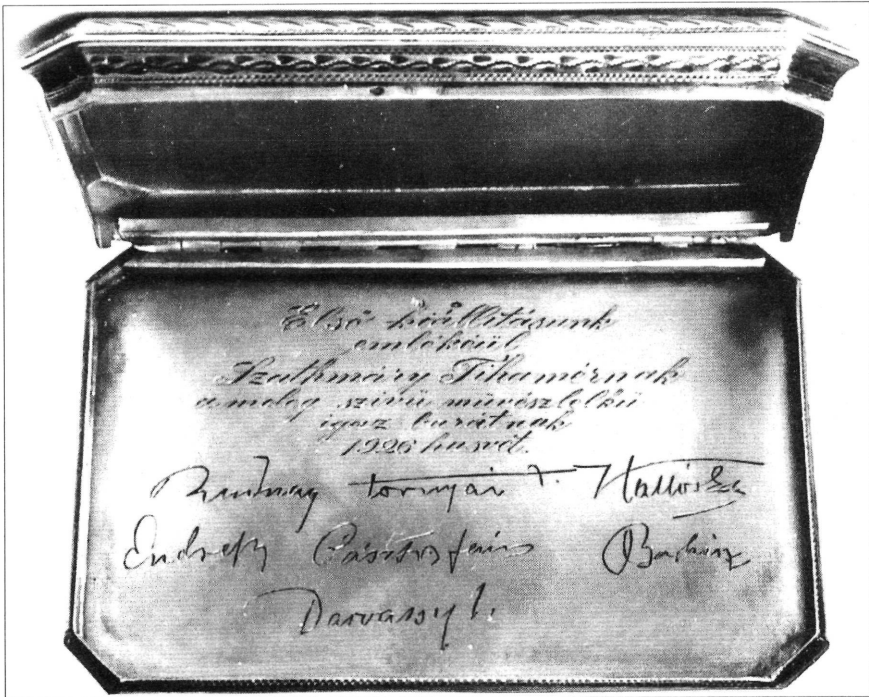 Első kiállitásunk
emlékéül
Szathmáry Tihamérnak
a meleg szivü müvészlelkü
igaz barátnak
1926 husvét.
Rudnay Tornyai J.
Endre Pásztor János
Darvassy I.